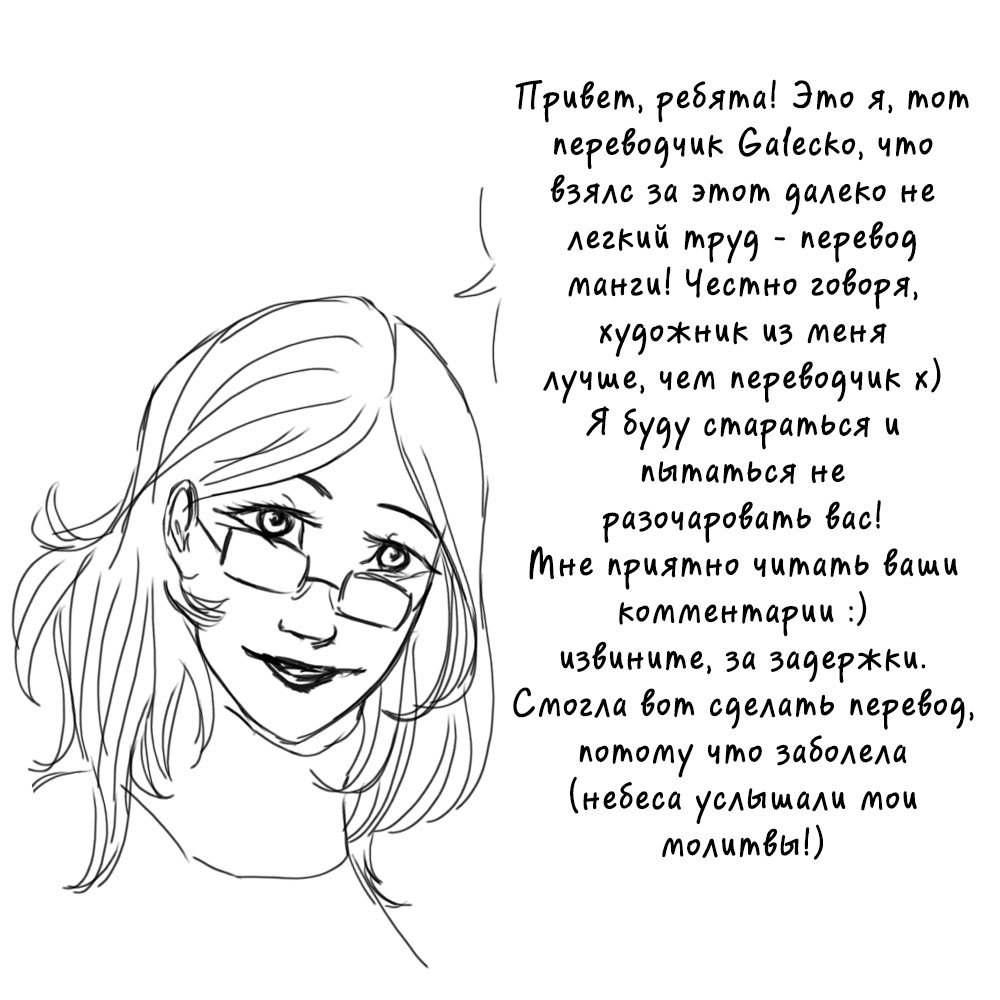 Привет, ребята! Это я, тот
переводчик Galecko, что
взялс за этот далеко не
легкий труд - перевод
манги! Честно говоря,
художник из меня
лучше, чем переводчик х)
Я буду стараться и
пытаться не
разочаровать вас!
Мне приятно читать ваши
комментарии :)
извините, за задержки.
Смогла вот сделать перевод,
потому что заболела
(небеса услышали мои
молитвы!)